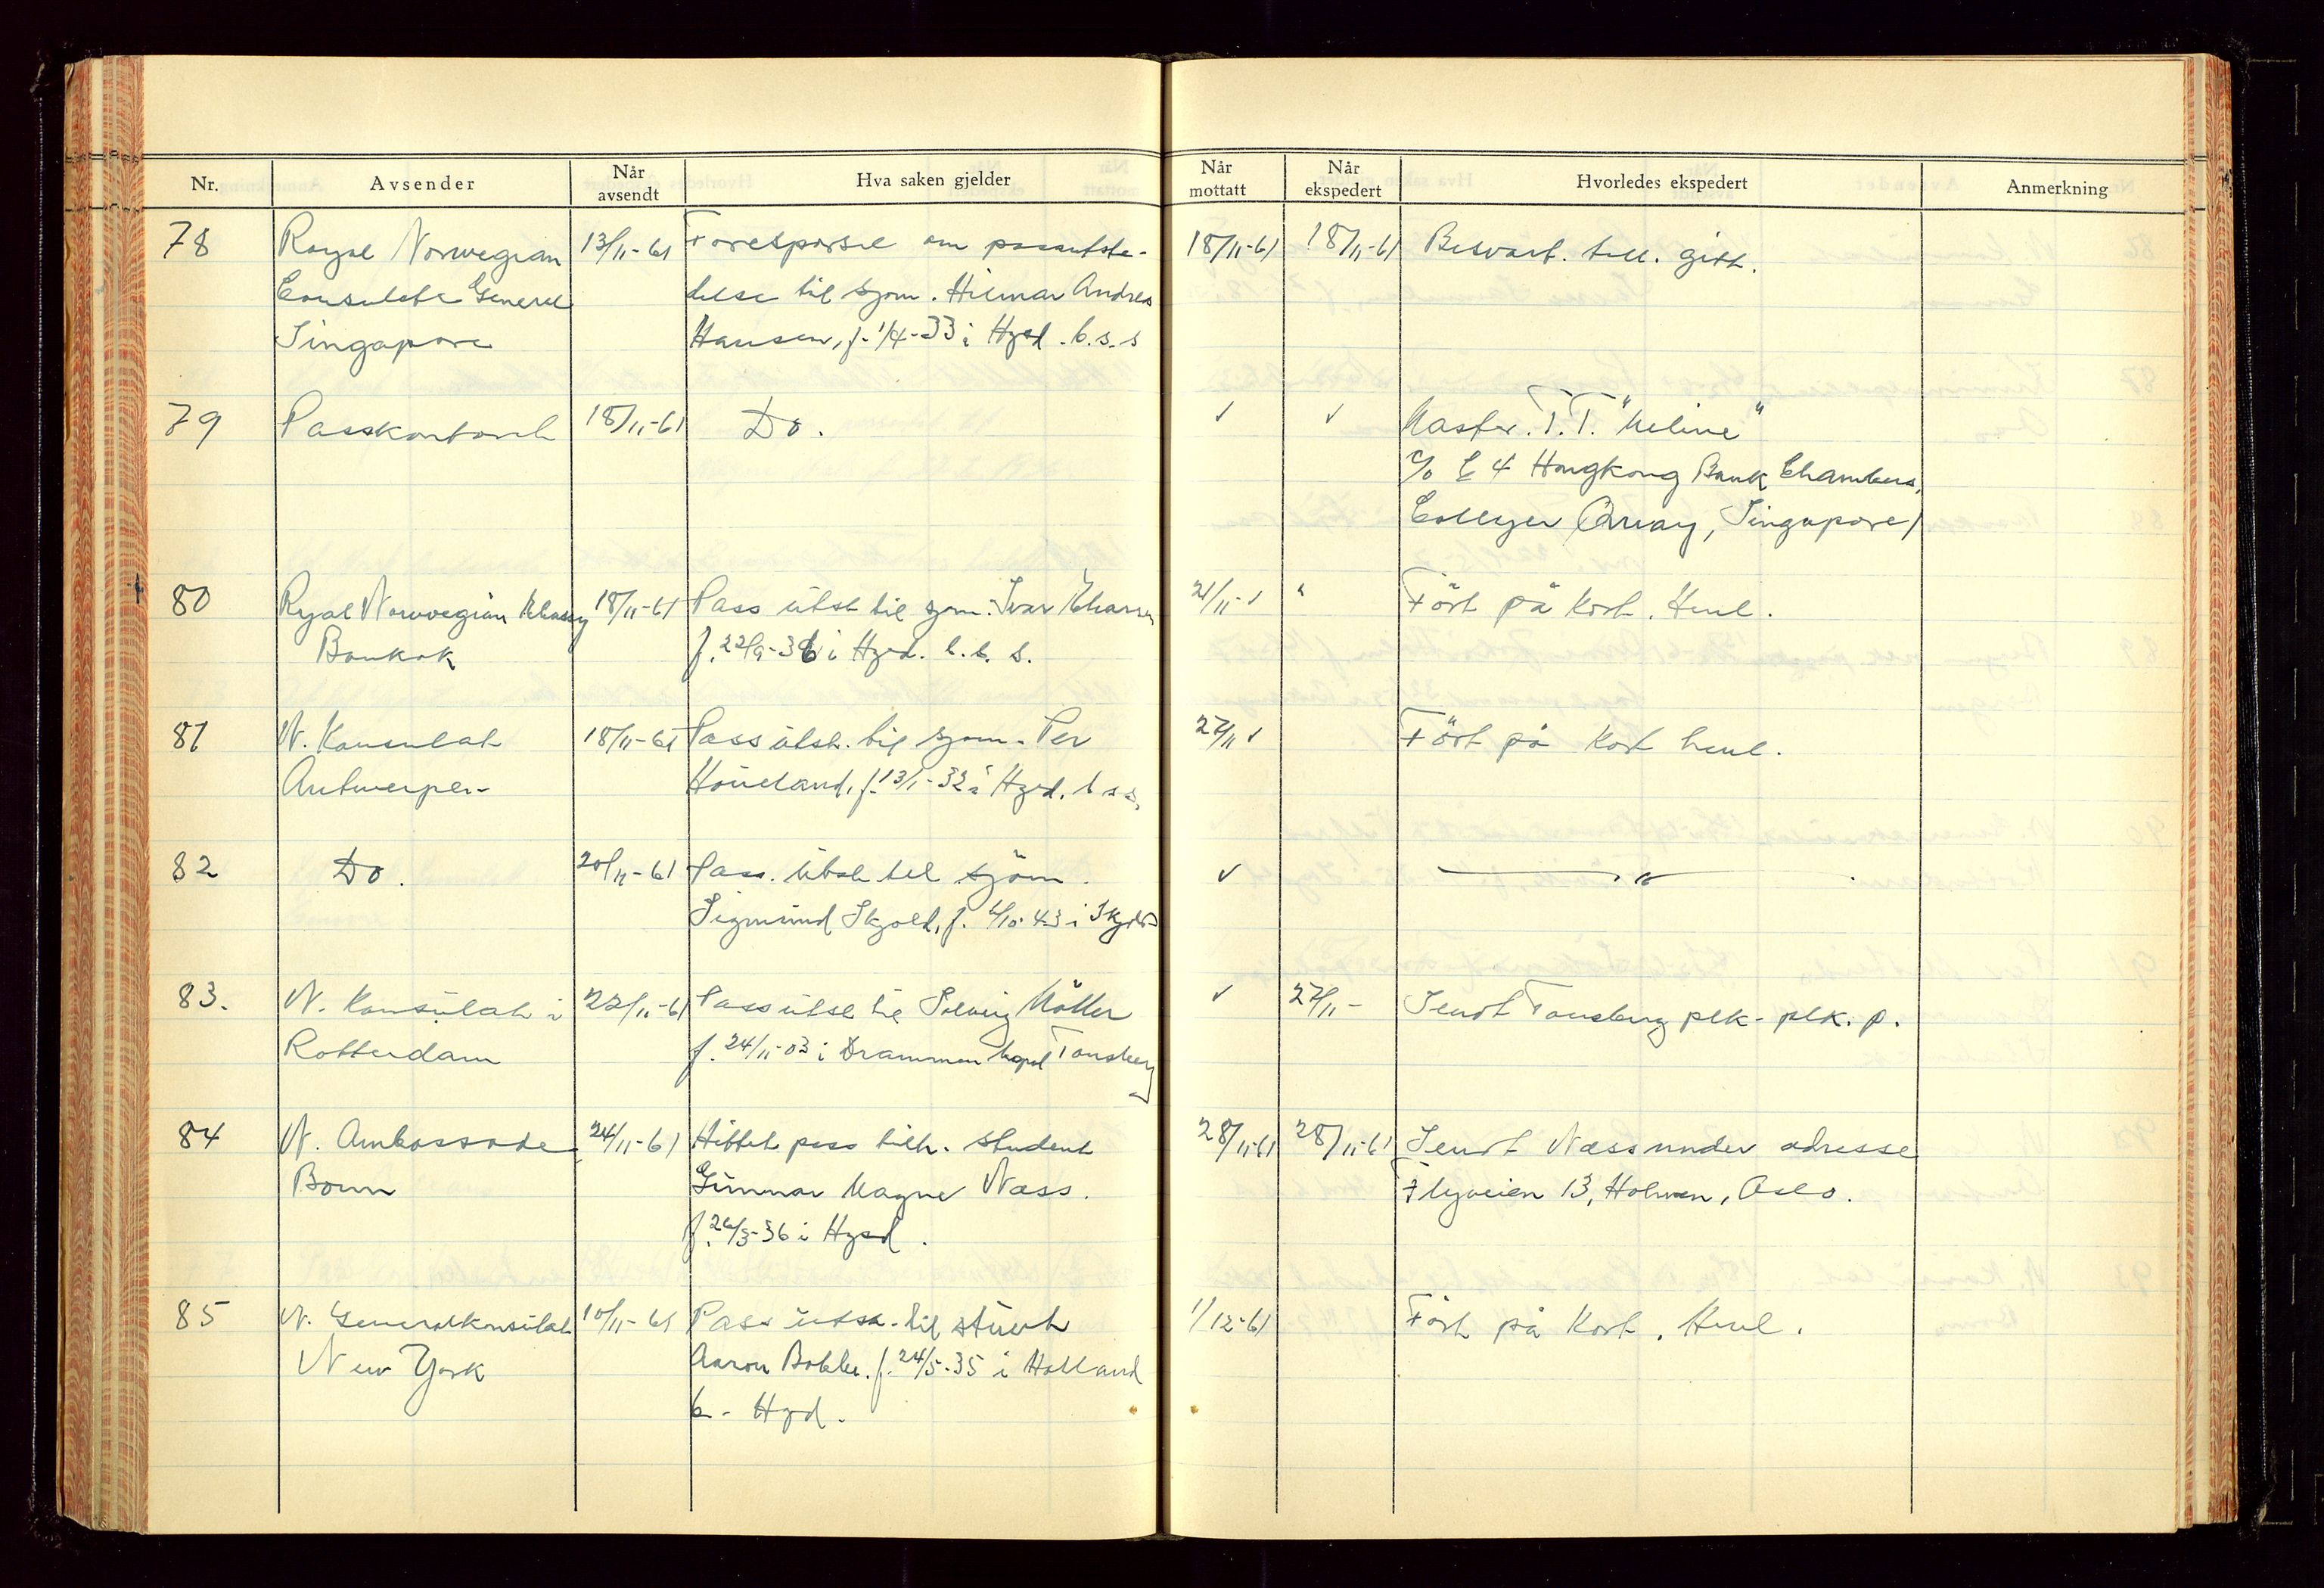 Nr.
Avsender
Når avsendt
Hva saken gjelder
Når mottatt
Når ekspedert
Hvorledes ekspedert
Anmerkning
78 Royal Norwegian 13/11-61 Forespørsel om passutste- 18/11-61 18/11-61 Besvart. till. gitt.
Consulate General delse til sjøm. Hilmar Andres
Singapore Hansen, f. 1/4-33 i Hgsd. b.s.s
79 Passkontoret 18/11-61 Do. ✓ ✓ Master. T.T. "Meline"
c/o 4 Hongkong Bank Chambers,
Collyer Quay, Singapore/
80 Ryal Norwegian 18/11-61 Pass utst til sjm. Ivar 21/11-✓ " Ført på Kort. Henl.
Bankok f. 22/9-36 i Hgsd. b.b.s.
81 N. Konsulat 18/11-61 Pass utst. til sjøm. Per 27/11 ✓ Ført på Kort henl.
Antwerpen Høieland, f. 13/1-32 i Hgsd. b s s.
82 Do. 20/11-61 Pass. utst til sjøm. ✓ — " —
Sigmund Skjold, f. /10-43 i
83. N. Konsulat i 22/11-61 Pass utst til Solveig Møller ✓ 27/11- Sendt Tønsberg plk. plk. p.
Rotterdam f. 24/11-03 i Drammen bopel Tønsberg
84 N. Ambassade 24/11-61 Hittet pass tilh. student 28/11-61 28/11-61 Sendt Næss under adresse
Bonn Gunnar Magne Næss. Flyveien 13, Holmen, Oslo.
f. 26/3-36 i Hgsd.
85 N. Generalkonsulat 10/11-61 Pass utst. til 1/12-61 Ført på Kort. Henl.
New York Aaron f. 24/5-35 i Holland
b. Hgsd.